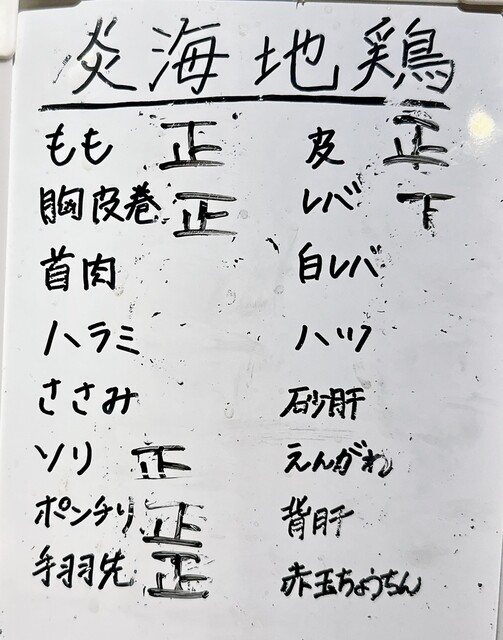 炎海地鶏
もも 正 皮 正
胸皮巻 正 レバ 下
首肉 白レバ
ハラミ ハツ
ささみ 砂肝
ソリ 正 えんがわ
ポンチリ 正 背肝
手羽先 正 赤玉ちょうちん